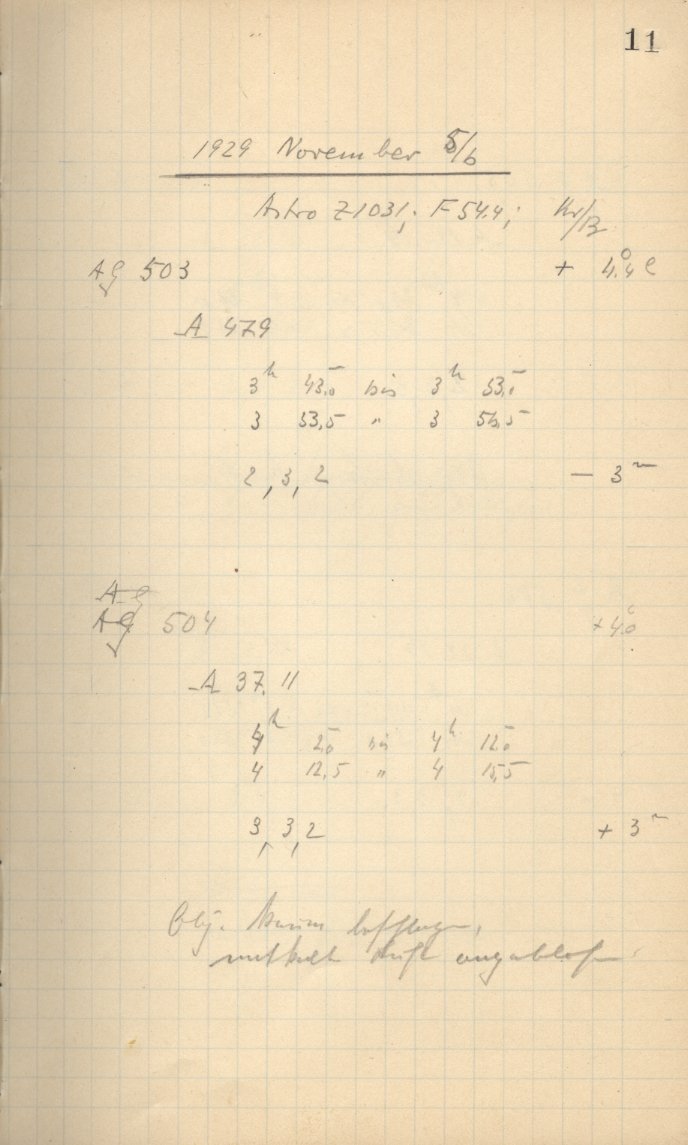 11
1929 November 5/6
Astro Z1031; F 54.4; Kr/B
AG 503 + 4.°4 C
A 479
3h 43,0m bis 3h 53,0m
3 53,5 " 3 56,5
2, 3, 2 − 3m
AG
AG 504 + 4.°0
A 37.11
4h 2,0m bis 4h 12,0m
4 12,5 " 4 15,5
3, 3, 2 + 3m
Obj. kaum
Luft